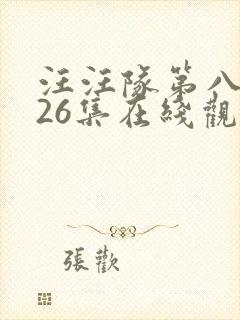 汪汪隊第八
26集在綫觀
張歡